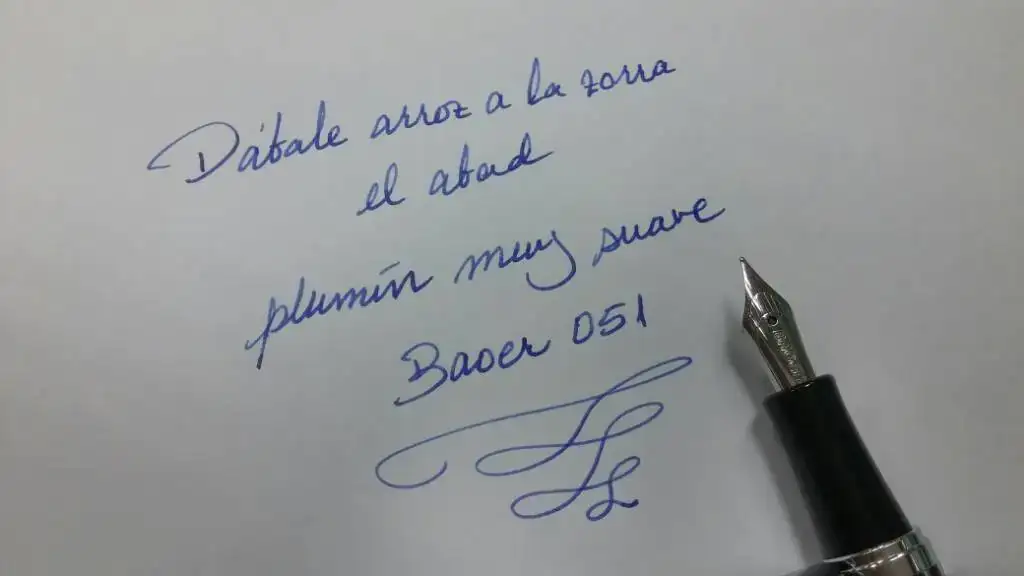 Dábale arroz a la zorra
el abad
plumín muy suave
Baoer 051